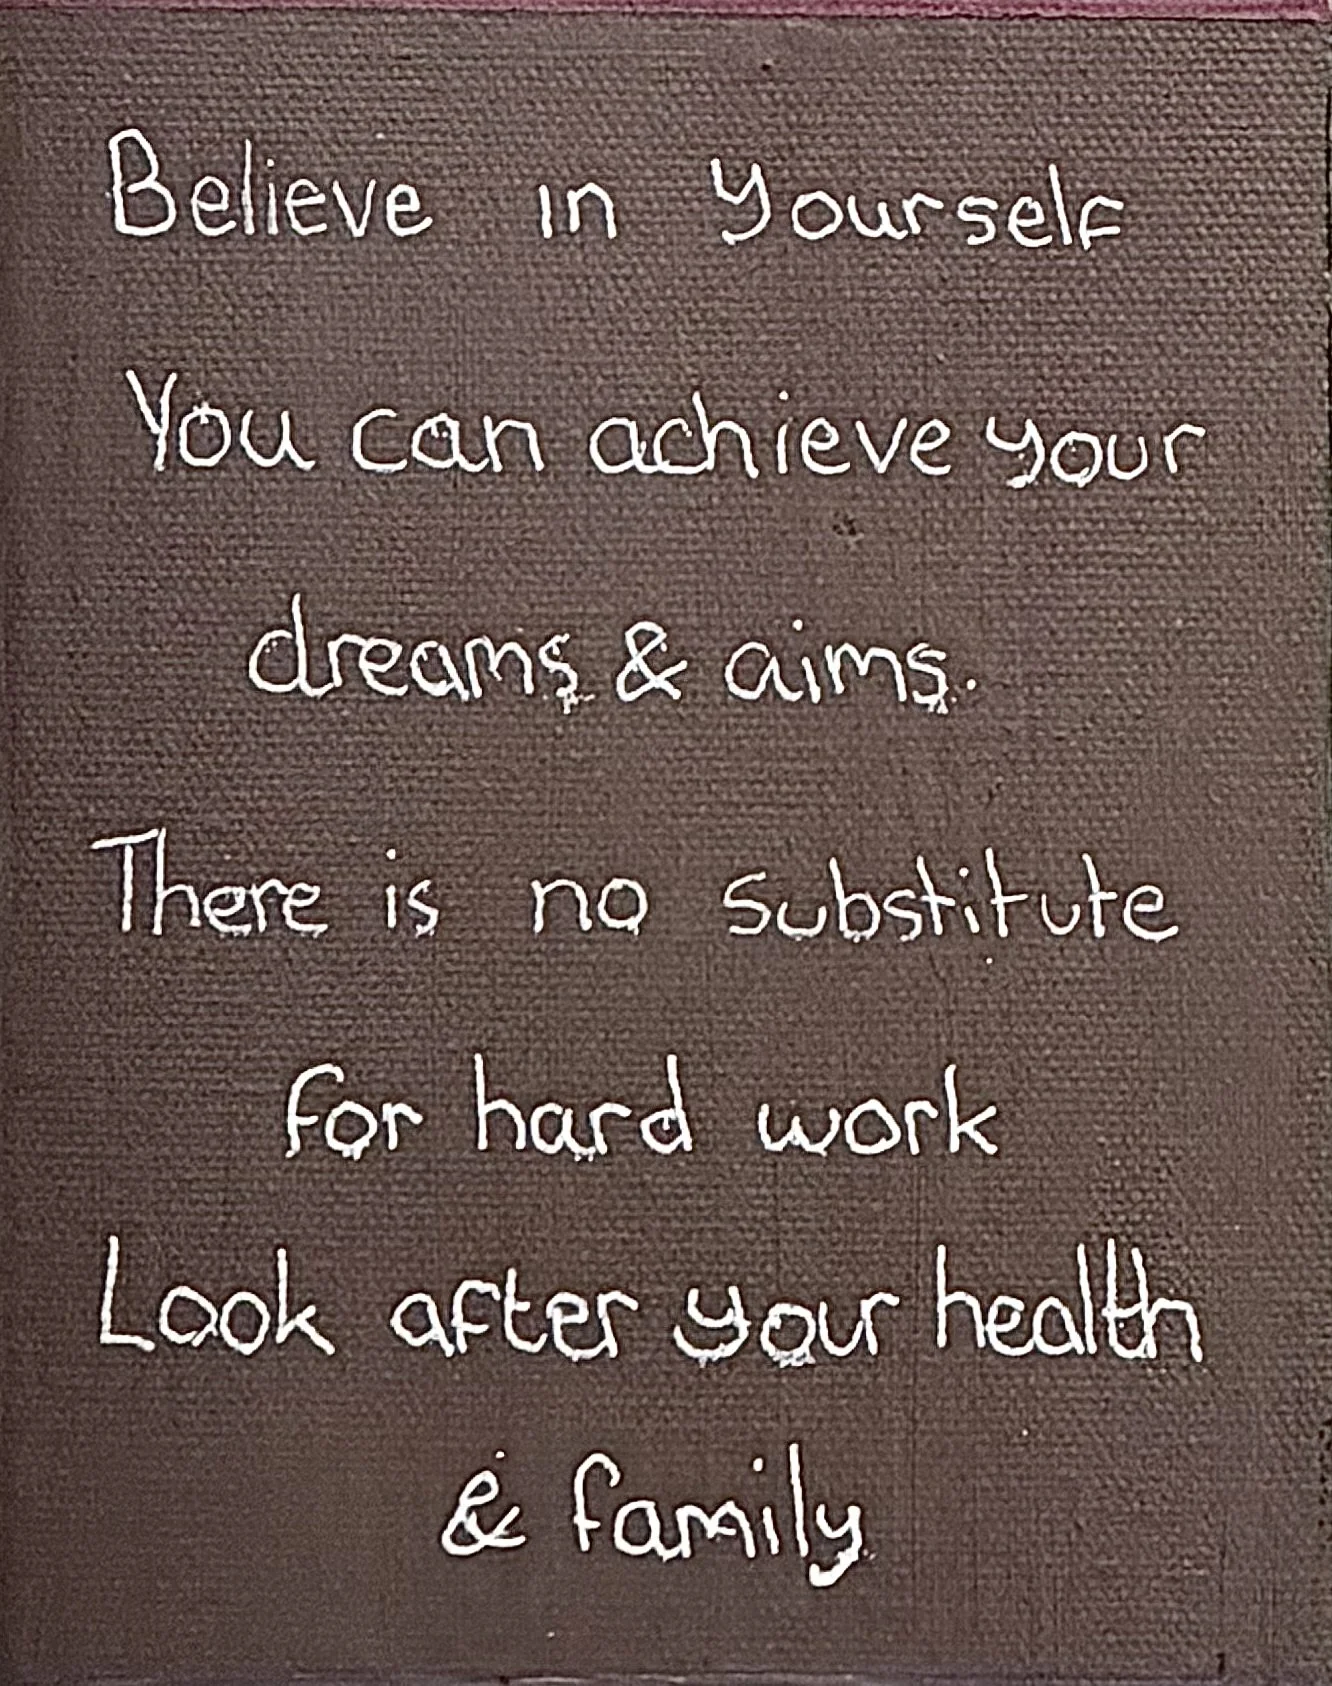 Believe in Yourself
You can achieve your
dreams & aims.
There is no substitute
for hard work
Look after your health
& family